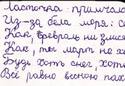 Ласточка примчалась
Из-за бела моря: с
Как февраль ни злися
Как, ты март не х
Будь хоть снег, хоть
Всё равно весною пах